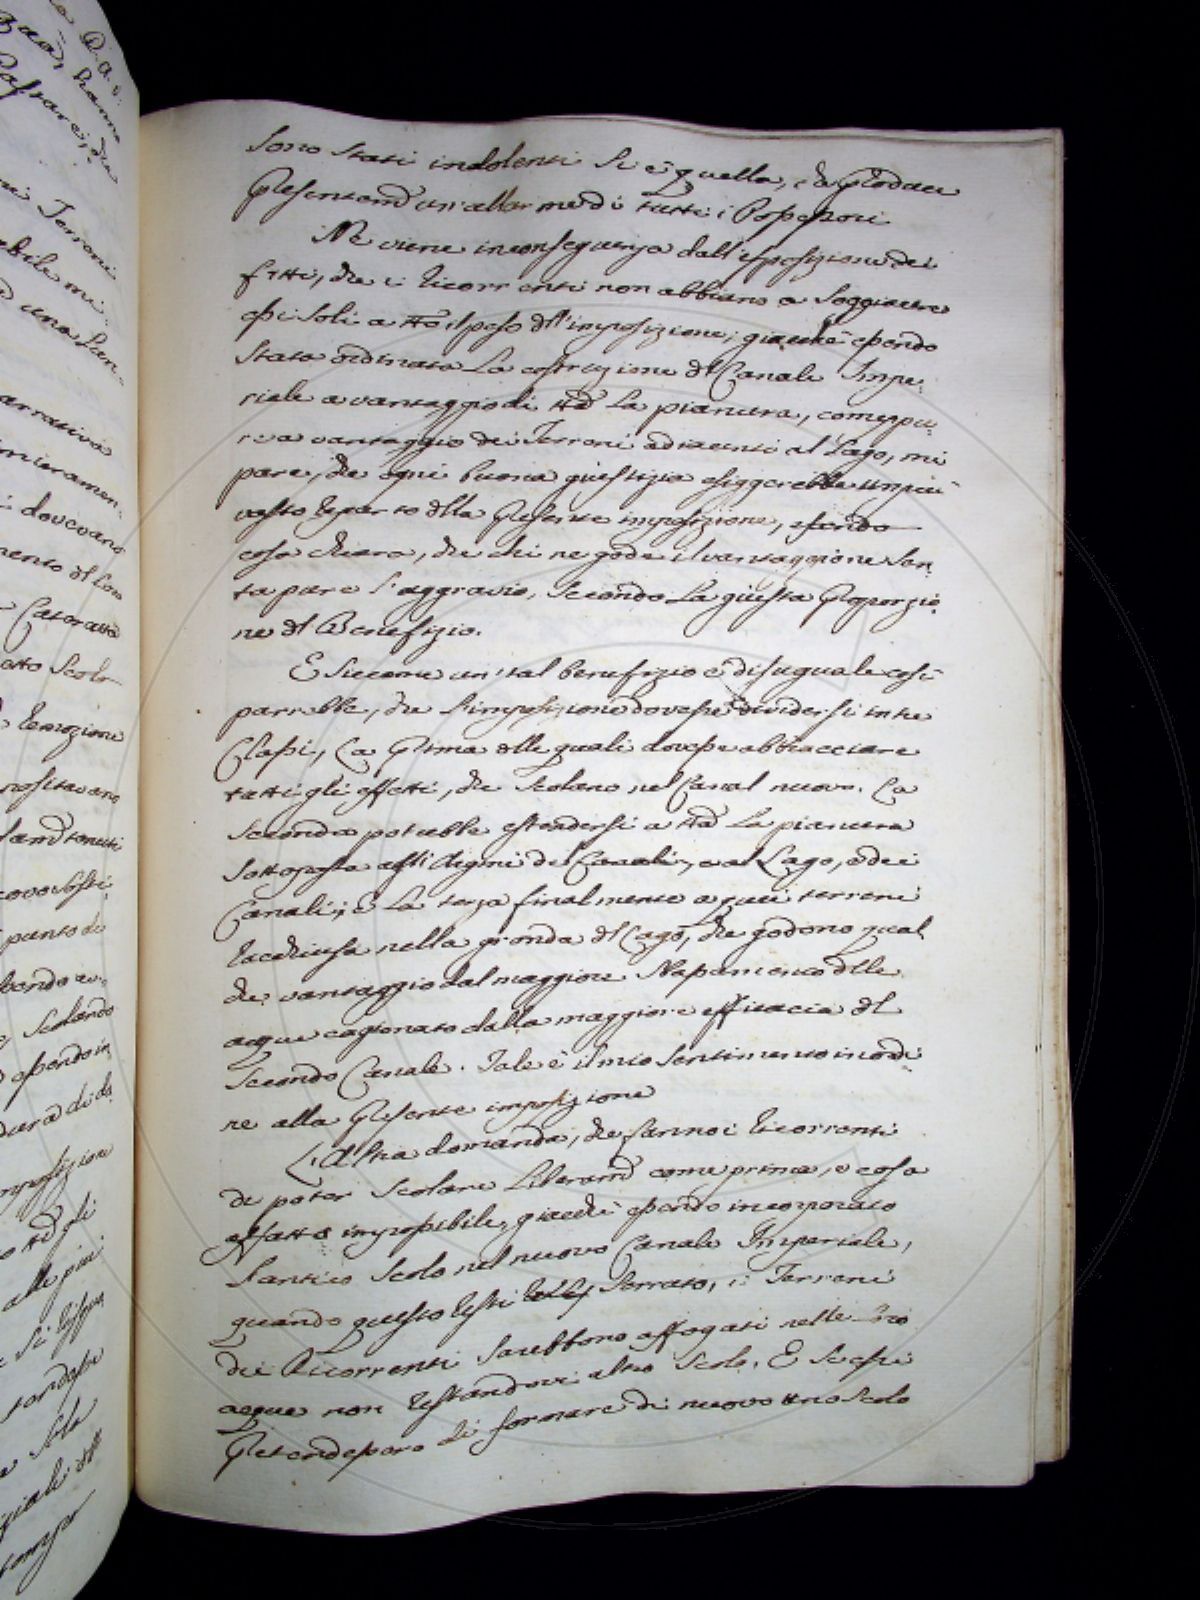 sono stati indolenti si è quella, che produce
presentem.e un'allarme di tutti i Possessori
Ne viene in conseguenza dall'esposizione dei
fatti, che i Ricorrenti non abbiano a soggiacere
essi soli a tt.o il peso dell'imposizione, giacchè essendo
stata ordinata la costruzione del Canale Impe-
riale a vantaggio di tt.a la pianura, come pu-
re a vantaggio dei Terreni adiacenti al Lago, mi
pare, che ogni buona giustizia esiggerebbe un più
vasto reparto della presente imposizione, essendo
cosa chiara, che chi ne gode il vantaggio ne sen-
ta pure l'aggravio, secondo la giusta proporzio-
ne del Benefizio.
E siccome un tal benefizio è disuguale così
parrebbe, che l'imposizione dovesse dividersi in tre
Classi, La prima delle quali dovesse abbracciare
tutti gli effetti, che scolano nel Canal nuovo. La
seconda potrebbe estendersi a tt.a la pianura
sottoposta agli Argini del Canale, e al Lago, e dei
Canali; e la terza finalmente a quei terreni
racchiusa nella gronda del Lago, che godono qual
che vantaggio dal maggiore
acque cagionato dalla maggiore efficacia del
secondo Canale. Tale è il mio sentimento in ordi-
ne alla presente imposizione
L'altra domanda, che fanno i Ricorrenti
di poter scolare liberam.e come prima, è cosa
affatto impossibile, giacchè essendo incorporato
l'antico scolo nel nuovo Canale Imperiale,
quando questo resti serrato, i Terreni
dei Ricorrenti sarebbono affogati nelle
acque non restandovi altro scolo. E se essi
pretendessero di formare di nuovo uno scolo
Terreni
arrativa
dovevano
Cateratta
scolo
remozione
punto di
scolando
essendo in
tt.i gli
alle piu